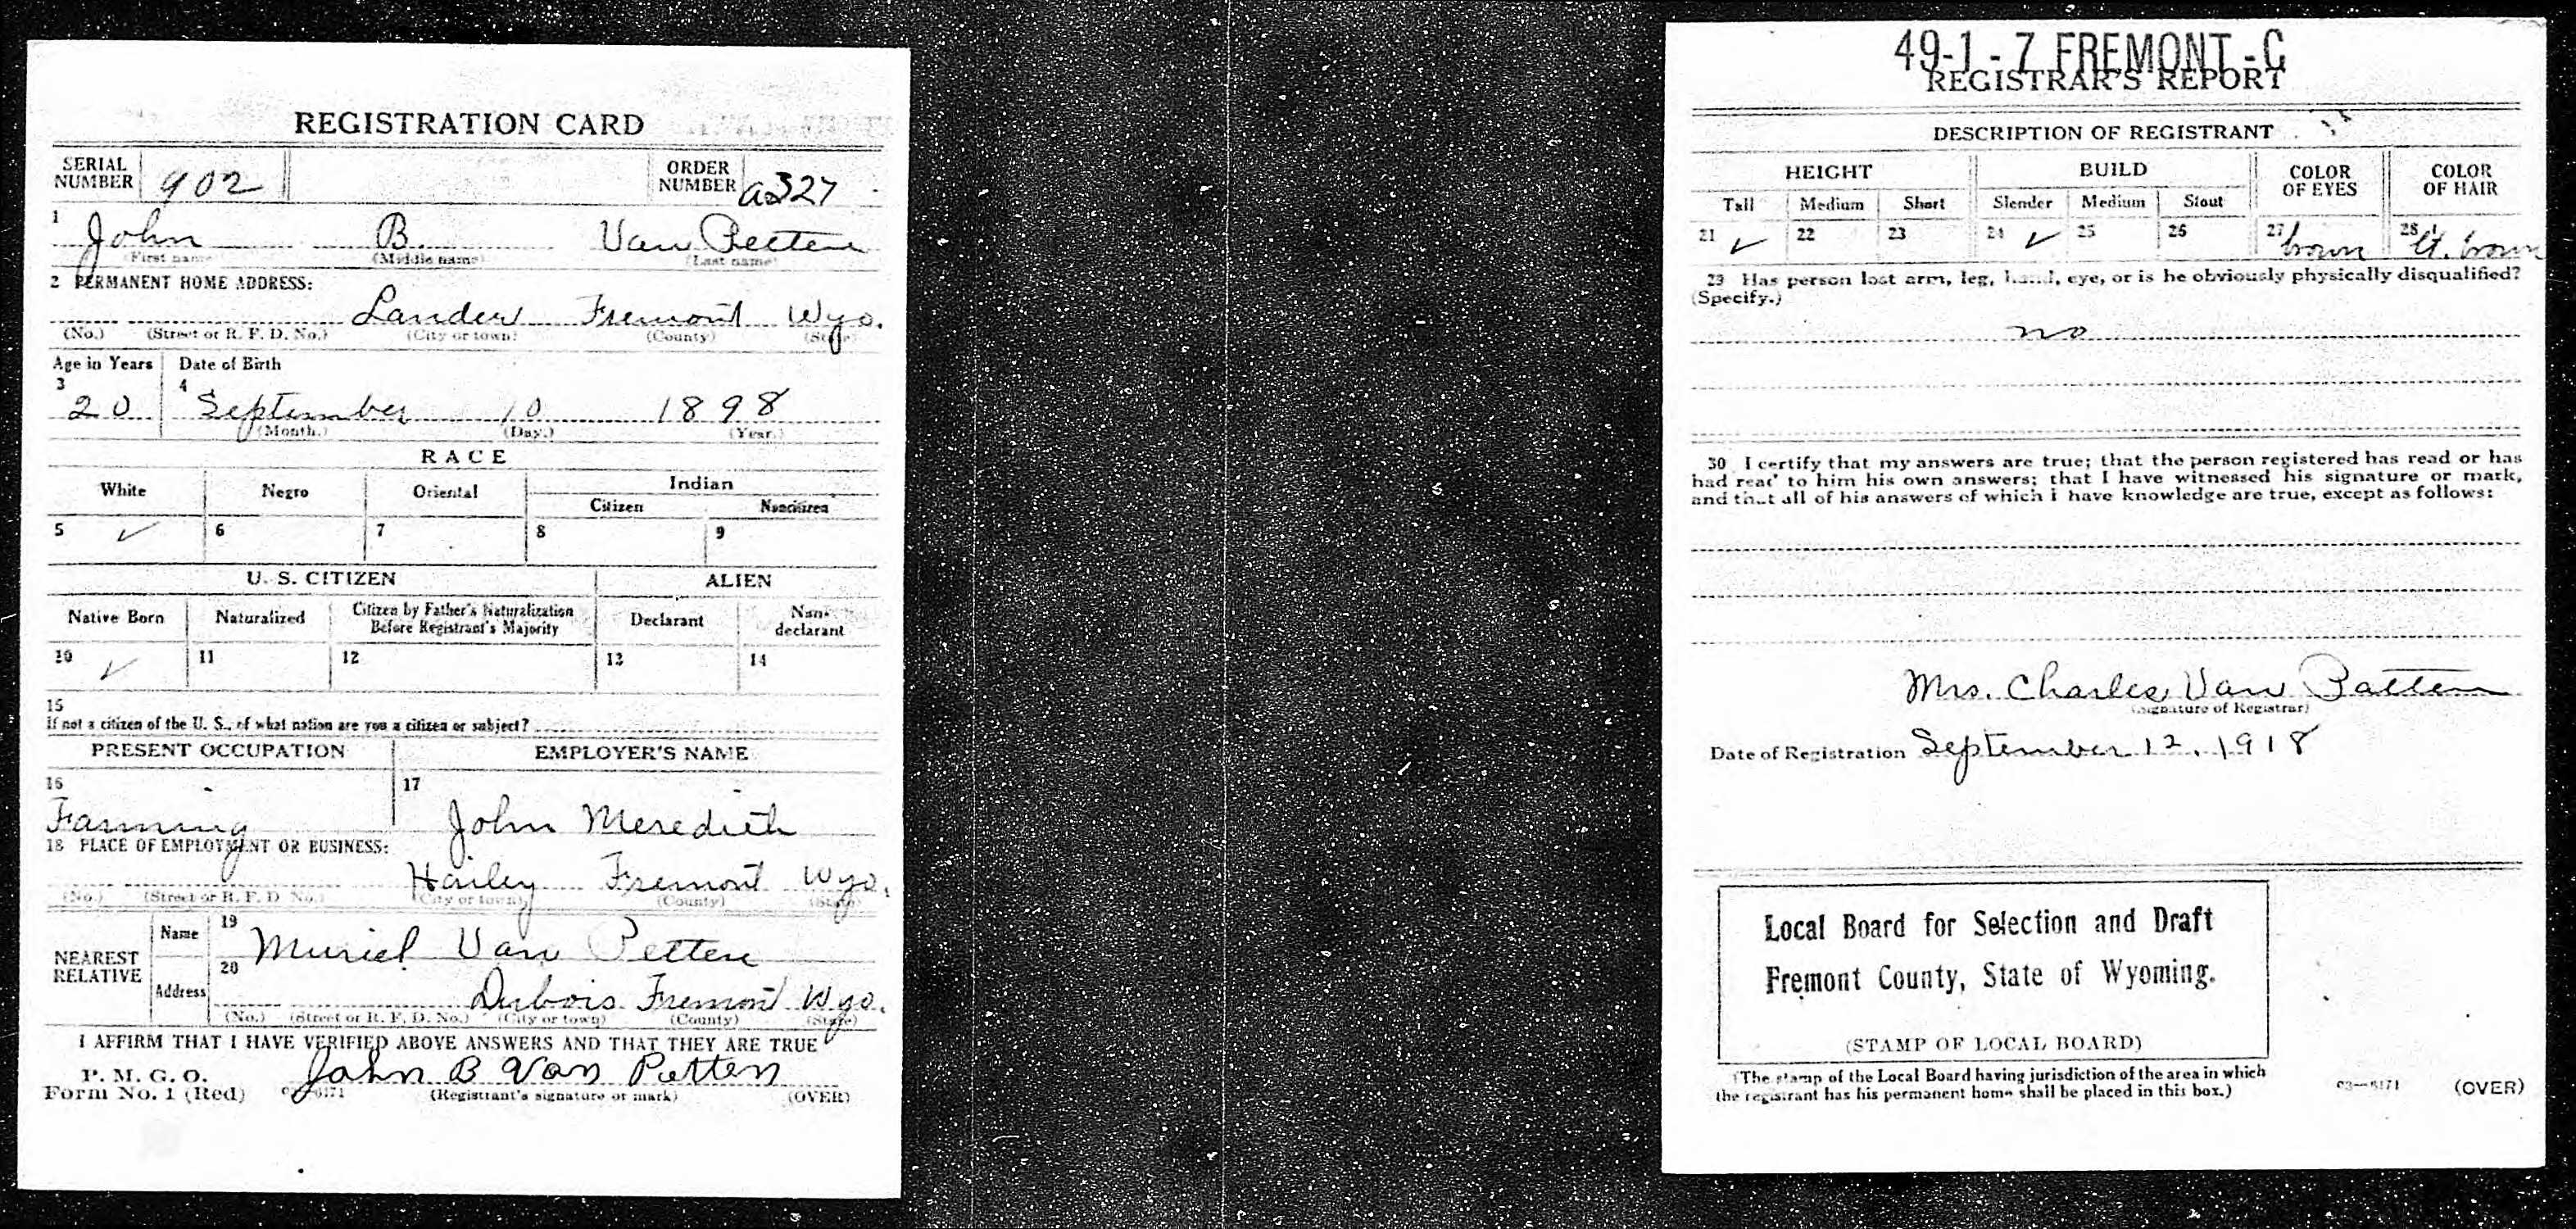 REGISTRATION CARD
SERIAL NUMBER 902 ORDER NUMBER a327
1 John B. Van Petten
(First name) (Middle name) (Last name)
2 PERMANENT HOME ADDRESS:
Lander Fremont Wyo.
(No.) (Street or R. F. D. No.) (City or town) (County) (State)
Age in Years Date of Birth
3 20 4 September 10 1898
(Month.) (Day.) (Year.)
RACE
White Negro Oriental Indian
Citizen Noncitizen
5 ✓ 6 7 8 9
U. S. CITIZEN ALIEN
Native Born Naturalized Citizen by Father's Naturalization Before Registrant's Majority Declarant Non-declarant
10 ✓ 11 12 13 14
15
If not a citizen of the U. S., of what nation are you a citizen or subject?
PRESENT OCCUPATION EMPLOYER'S NAME
16 17
Farming John Meredith
18 PLACE OF EMPLOYMENT OR BUSINESS:
Hailey Fremont Wyo.
(No.) (Street or R. F. D. No.) (City or town) (County) (State)
NEAREST RELATIVE
Name 19 Muriel Van Petten
Address 20 Dubois Fremont Wyo.
(No.) (Street or R. F. D. No.) (City or town) (County) (State)
I AFFIRM THAT I HAVE VERIFIED ABOVE ANSWERS AND THAT THEY ARE TRUE
P. M. G. O.
Form No. 1 (Red) 03—6171 John B Van Petten
(Registrant's signature or mark) (OVER)
49-1-7 FREMONT-C
REGISTRAR'S REPORT
DESCRIPTION OF REGISTRANT
HEIGHT BUILD COLOR OF EYES COLOR OF HAIR
Tall Medium Short Slender Medium Stout
21 ✓ 22 23 24 ✓ 25 26 27 brown 28 lt. brown
29 Has person lost arm, leg, hand, eye, or is he obviously physically disqualified?
(Specify.)
no
30 I certify that my answers are true; that the person registered has read or has
had read to him his own answers; that I have witnessed his signature or mark,
and that all of his answers of which I have knowledge are true, except as follows:
Mrs. Charles Van Patten
(Signature of Registrar)
Date of Registration September 12, 1918
Local Board for Selection and Draft
Fremont County, State of Wyoming.
(STAMP OF LOCAL BOARD)
(The stamp of the Local Board having jurisdiction of the area in which
the registrant has his permanent home shall be placed in this box.)
03—6171 (OVER)